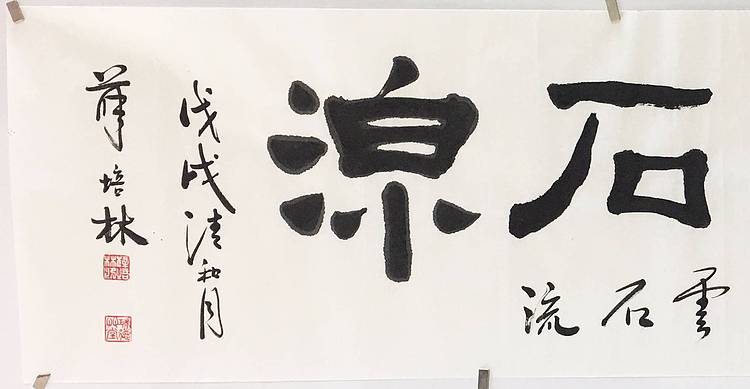 石涼
雲石流
戊戌清和月
薛培林